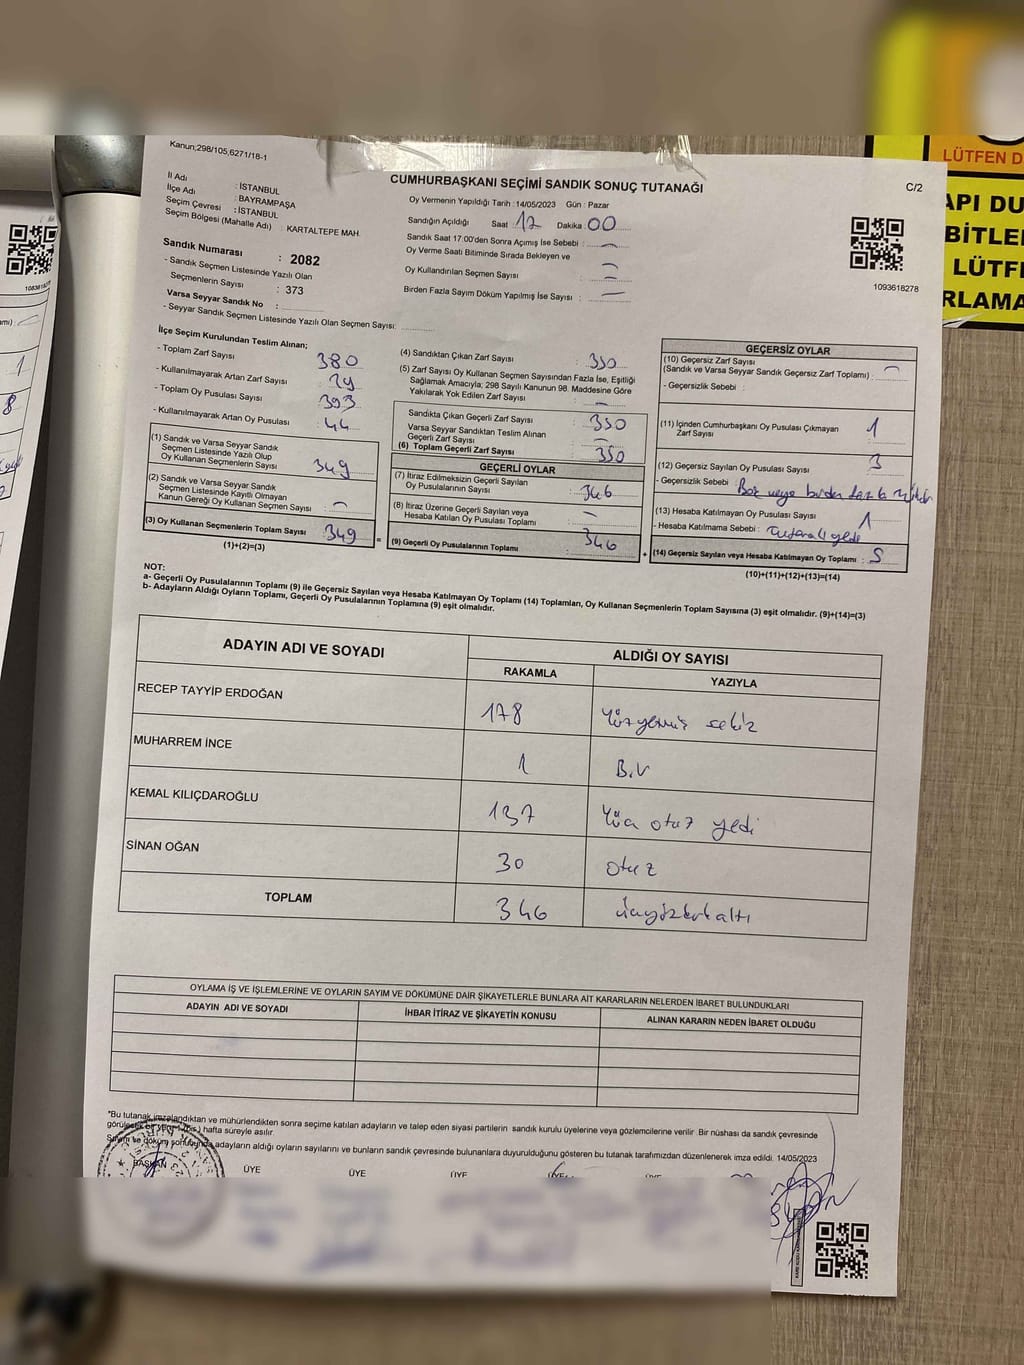 Kanun;298/105,6271/18-1
CUMHURBAŞKANI SEÇİMİ SANDIK SONUÇ TUTANAĞI
C/2
İl Adı : İSTANBUL
İlçe Adı : BAYRAMPAŞA
Seçim Çevresi : İSTANBUL
Seçim Bölgesi (Mahalle Adı) : KARTALTEPE MAH.
Sandık Numarası : 2082
- Sandık Seçmen Listesinde Yazılı Olan
Seçmenlerin Sayısı : 373
Varsa Seyyar Sandık No :
- Seyyar Sandık Seçmen Listesinde Yazılı Olan Seçmen Sayısı:
Oy Vermenin Yapıldığı Tarih : 14/05/2023 Gün : Pazar
Sandığın Açıldığı Saat 17 Dakika : 00
Sandık Saat 17:00'den Sonra Açılmış İse Sebebi : —
Oy Verme Saati Bitiminde Sırada Bekleyen ve
Oy Kullandırılan Seçmen Sayısı : —
Birden Fazla Sayım Döküm Yapılmış İse Sayısı : —
1093618278
İlçe Seçim Kurulundan Teslim Alınan;
- Toplam Zarf Sayısı : 380
- Kullanılmayarak Artan Zarf Sayısı : 29
- Toplam Oy Pusulası Sayısı : 393
- Kullanılmayarak Artan Oy Pusulası : 44
(1) Sandık ve Varsa Seyyar Sandık
Seçmen Listesinde Yazılı Olup
Oy Kullanan Seçmenlerin Sayısı : 349
(2) Sandık ve Varsa Seyyar Sandık
Seçmen Listesinde Kayıtlı Olmayan
Kanun Gereği Oy Kullanan Seçmen Sayısı : —
(3) Oy Kullanan Seçmenlerin Toplam Sayısı : 349
(1)+(2)=(3)
(4) Sandıktan Çıkan Zarf Sayısı : 350
(5) Zarf Sayısı Oy Kullanan Seçmen Sayısından Fazla İse, Eşitliği
Sağlamak Amacıyla; 298 Sayılı Kanunun 98. Maddesine Göre
Yakılarak Yok Edilen Zarf Sayısı : —
Sandıkta Çıkan Geçerli Zarf Sayısı : 350
Varsa Seyyar Sandıktan Teslim Alınan
Geçerli Zarf Sayısı : —
(6) Toplam Geçerli Zarf Sayısı : 350
GEÇERLİ OYLAR
(7) İtiraz Edilmeksizin Geçerli Sayılan
Oy Pusulalarının Sayısı : 346
(8) İtiraz Üzerine Geçerli Sayılan veya
Hesaba Katılan Oy Pusulası Toplamı : —
(9) Geçerli Oy Pusulalarının Toplamı : 346
GEÇERSİZ OYLAR
(10) Geçersiz Zarf Sayısı
(Sandık ve Varsa Seyyar Sandık Geçersiz Zarf Toplamı) : —
- Geçersizlik Sebebi :
(11) İçinden Cumhurbaşkanı Oy Pusulası Çıkmayan
Zarf Sayısı : 1
(12) Geçersiz Sayılan Oy Pusulası Sayısı : 3
- Geçersizlik Sebebi : Boş veya birden fazla mühür
(13) Hesaba Katılmayan Oy Pusulası Sayısı : 1
- Hesaba Katılmama Sebebi :
(14) Geçersiz Sayılan veya Hesaba Katılmayan Oy Toplamı : 5
(10)+(11)+(12)+(13)=(14)
NOT:
a- Geçerli Oy Pusulalarının Toplamı (9) ile Geçersiz Sayılan veya Hesaba Katılmayan Oy Toplamı (14) Toplamları, Oy Kullanan Seçmenlerin Toplam Sayısına (3) eşit olmalıdır. (9)+(14)=(3)
b- Adayların Aldığı Oyların Toplamı, Geçerli Oy Pusulalarının Toplamına (9) eşit olmalıdır.
ADAYIN ADI VE SOYADI ALDIĞI OY SAYISI
RAKAMLA YAZIYLA
RECEP TAYYİP ERDOĞAN 178 Yüzyetmiş sekiz
MUHARREM İNCE 1 Bir
KEMAL KILIÇDAROĞLU 137 Yüz otuz yedi
SİNAN OĞAN 30 otuz
TOPLAM 346 üçyüzkırkaltı
OYLAMA İŞ VE İŞLEMLERİNE VE OYLARIN SAYIM VE DÖKÜMÜNE DAİR ŞİKAYETLERLE BUNLARA AİT KARARLARIN NELERDEN İBARET BULUNDUKLARI
ADAYIN ADI VE SOYADI İHBAR İTİRAZ VE ŞİKAYETİN KONUSU ALINAN KARARIN NEDEN İBARET OLDUĞU
"Bu tutanak imzalandıktan ve mühürlendikten sonra seçime katılan adayların ve talep eden siyasi partilerin sandık kurulu üyelerine veya gözlemcilerine verilir. Bir nüshası da sandık çevresinde
hafta süreyle asılır.
adayların aldığı oyların sayılarını ve bunların sandık çevresinde bulunanlara duyurulduğunu gösteren bu tutanak tarafımızdan düzenlenerek imza edildi. 14/05/2023
BAŞKAN ÜYE ÜYE ÜYE ÜYE ÜYE
LÜTFEN
API DU
BİTLE
LÜTF
RLAMA